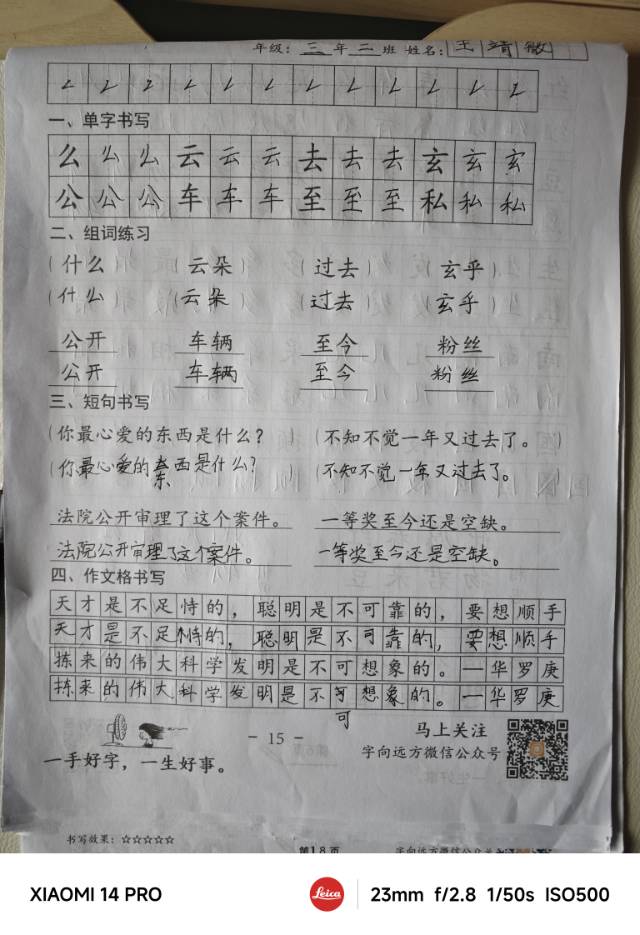 年级：三年二班 姓名：王靖薇
一、单字书写
么么么云云云去去去玄玄玄
公公公车车车至至至私私私
二、组词练习
（什么 （云朵） （过去） （玄乎）
（什么 （云朵） （过去） （玄乎）
公开 车辆 至今 粉丝
公开 车辆 至今 粉丝
三、短句书写
（你最心爱的东西是什么？ （不知不觉一年又过去了。 ）
（你最心爱的 西是什么？ （不知不觉一年又过去了。
东
法院公开审理了这个案件。 一等奖至今还是空缺。
法院公开审理了这个案件。 一等奖至今还是空缺。
四、作文格书写
天才是不足恃的，聪明是不可靠的，要想顺手
天才是不足恃的，聪明是不可靠的，要想顺手
拣来的伟大科学发明是不可想象的。—华罗庚
拣来的伟大科学发明是不可想象的。—华罗庚
可
- 15 -
马上关注
字向远方微信公众号
一手好字，一生好事。
书写效果：☆☆☆☆☆
第18页
字向远方微信公众
XIAOMI 14 PRO
Leica
23mm f/2.8 1/50s ISO500